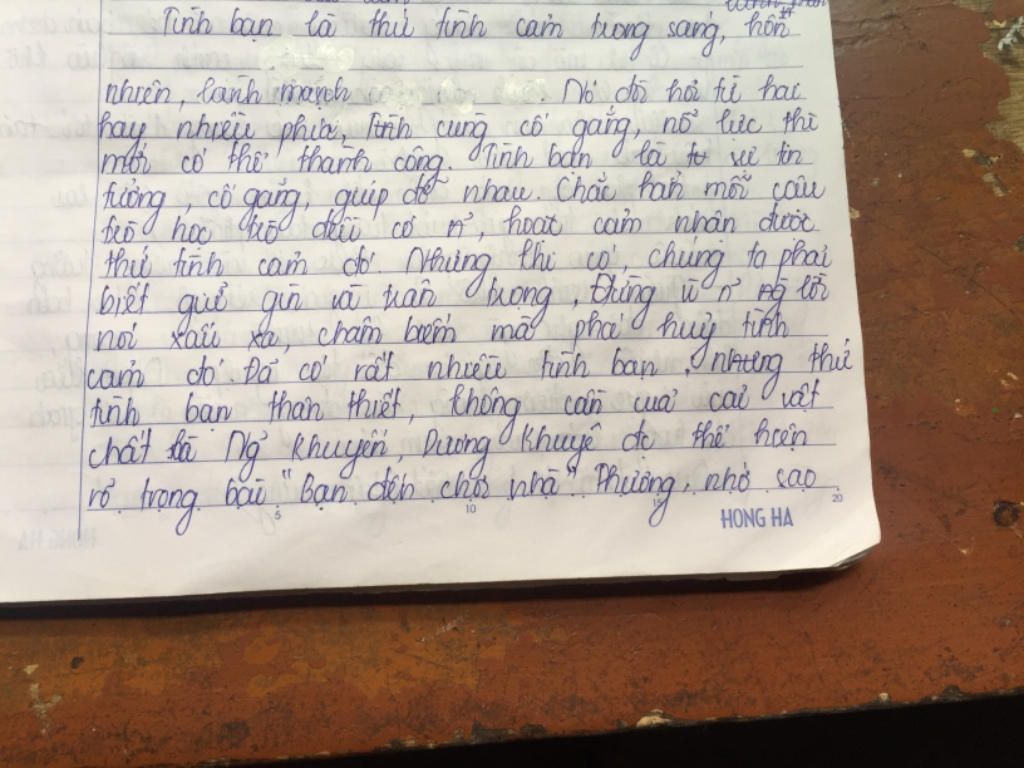 Tình bạn là thứ tình cảm trong sáng, hồn
nhiên, lành mạnh. Nó đòi hỏi từ hai
hay nhiều phía cùng cố gắng, nổ lực thì
mới có thể thành công. Tình bạn là sự tin
tưởng, cố gắng, giúp đỡ nhau. Chắc hẳn mỗi cậu
trò học trò đều có hoặc cảm nhận được
thứ tình cảm đó. Nhưng khi có, chúng ta phải
biết giữ gìn và trân trọng, Đừng vì lời
nói xấu xa, châm biếm mà phá huỷ tình
cảm đó. Đã có rất nhiều tình bạn, nhưng thứ
tình bạn thân thiết, không cần của cải vật
chất là Ng Khuyến, Dương Khuê đc thể hiện
rõ trong bài "Bạn đến chơi nhà" Thường, nhớ sao
5 10 15 20
HONG HA